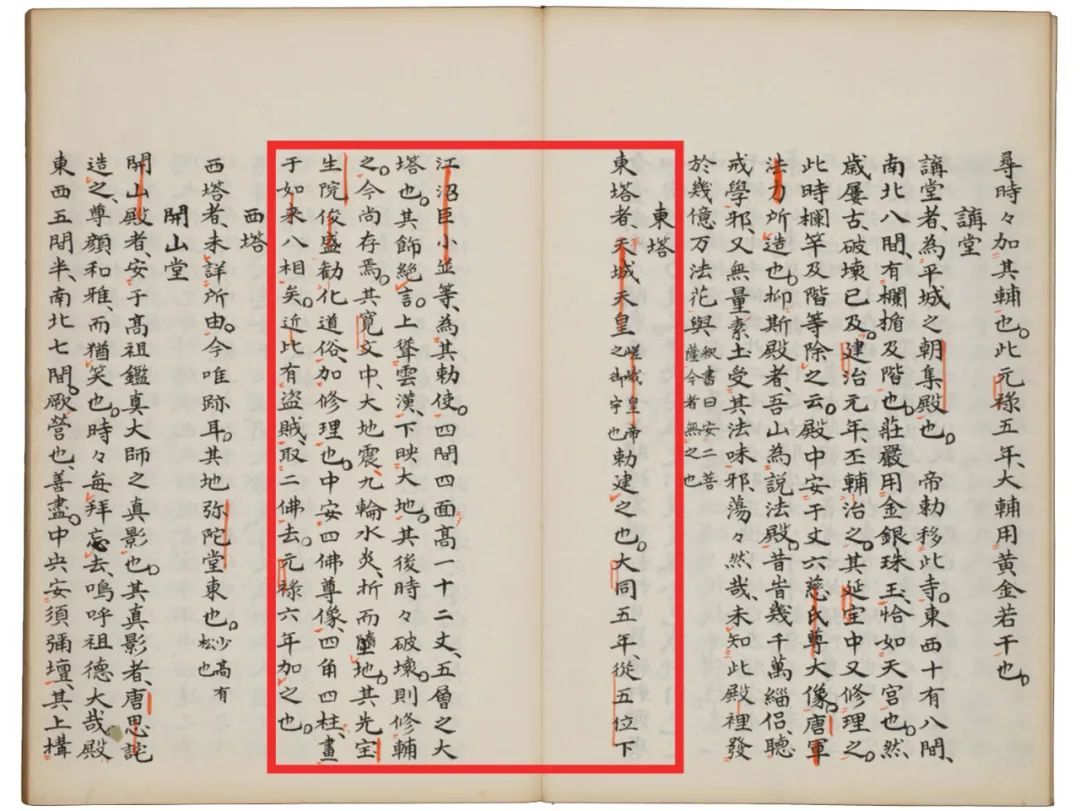 尋時々加其輔也。此元祿五年、大輔用黃金若干也。
講堂
講堂者、為平城之朝集殿也。 帝勅移此寺。東西十有八間、
南北八間、有欄楯及階也。莊嚴用金銀珠玉、恰如天宮也。然
歲屢古、破壞已及建治元年、丕輔治之。其延宝中又修理之。
此時欄竿及階等除之云。殿中安于丈六慈氏尊大像。唐軍
法力所造也。抑斯殿者、吾山為說法殿。昔幾千萬緇侶、聽
戒學邪、又無量素士受其法味邪、蕩々然哉。未知此殿裡發
於幾億万法花與 釈書曰安二菩
薩今者無之也
東塔
東塔者、天城天皇 嵯峨皇帝
之御宇也 勅建之也。大同五年從五位下
平
江沼臣小並等、為其勅使。四間四面高一十二丈、五層之大
塔也。其飾絶言。上聳雲漢、下映大地。其後時々破壞。則修輔
之。今尚存焉。其寬文中、大地震、九輪水炎、折而墮地。其先宝
生院俊盛勸化道俗、加修理也。中安四佛尊像、四角四柱、畫
于如来八相矣。近比有盗賊、取二佛去。元祿六年加之也。
西塔
西塔者、未詳所由。今唯跡耳。其地弥陀堂東也。少高有
松也
開山堂
開山殿者、安于高祖鑑真大師之真影也。其真影者、唐思託
造之、尊顏和雅、而猶笑也。時々每拜忘去、嗚呼祖德大哉。殿
東西五間半、南北七間。厥營也、善盡。中央安須彌壇、其上構